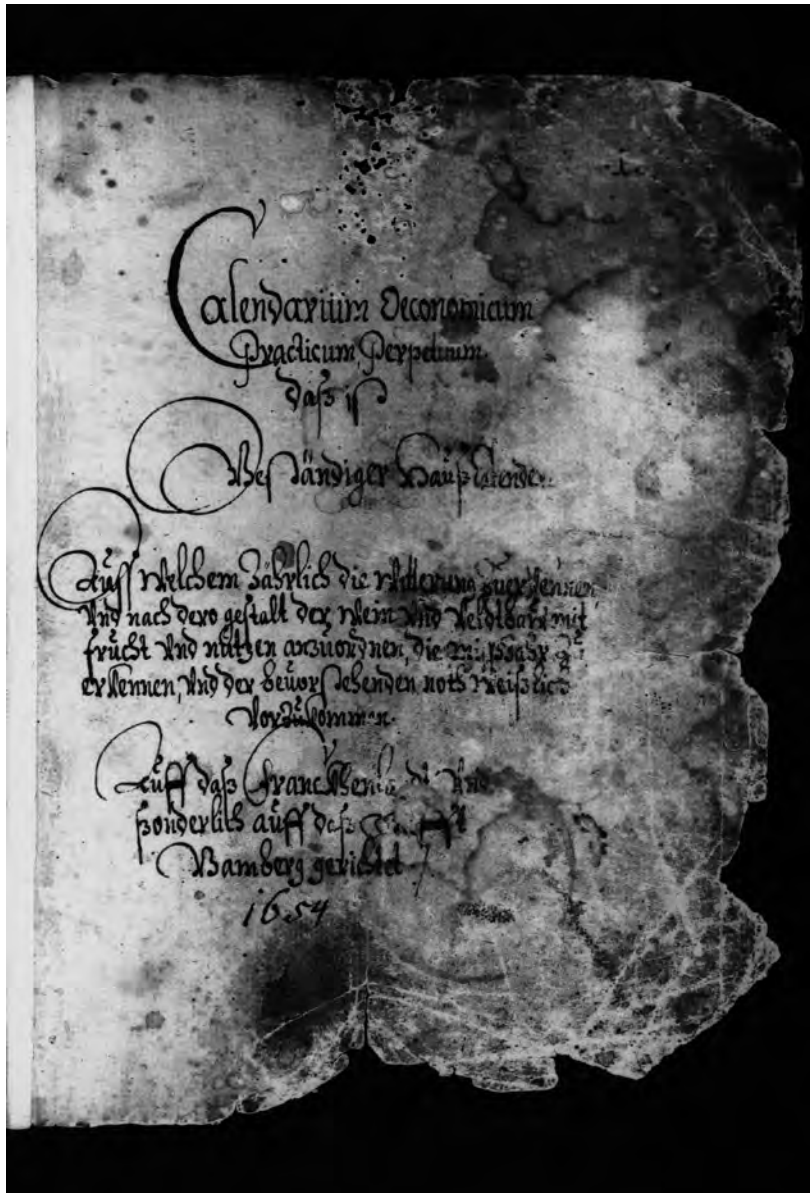 Calendarium Oeconomicum
Practicum Perpetuum
daß ist
Beständiger Hauß
Auss welchem Jährlich die Witterung zuerkennen
Vnd nach dero gestalt der Wein Vnd Veldtbaw mit
frucht Vnd nutzen anzuordnen, die zu
erkennen, Vnd der beuorstehenden noth weißlich
Vorzukommen.
Auff daß Vnd
sonderlich auff deß
Bamberg gerichtet
1654